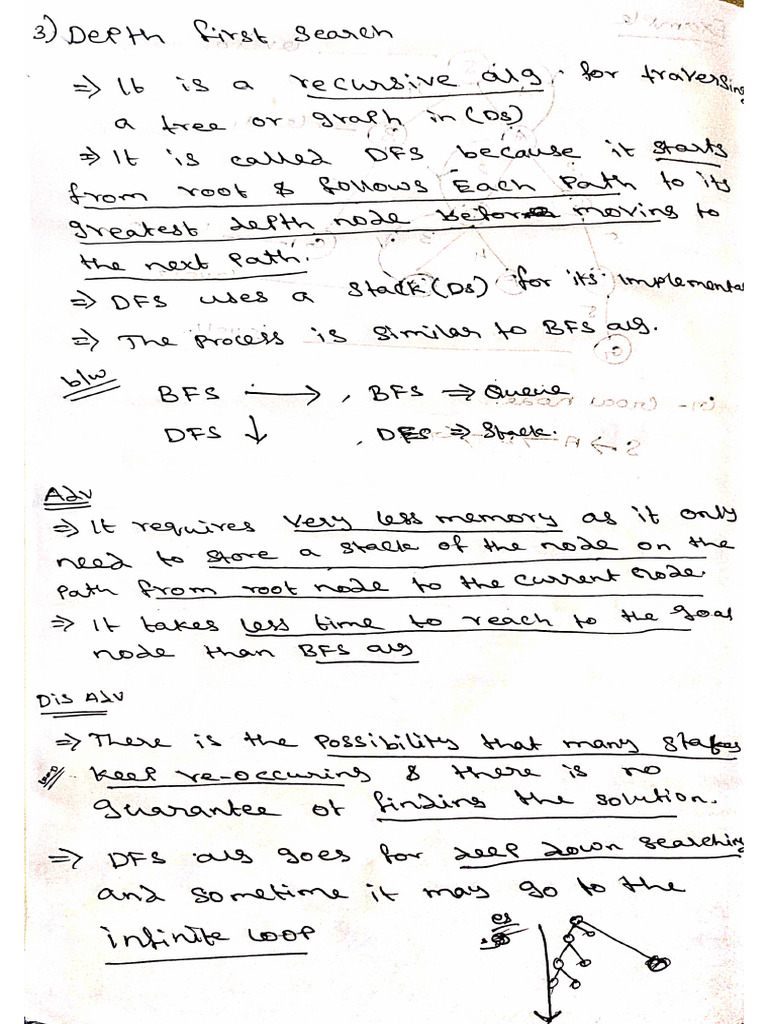 3) Depth first search
⇒ It is a recursive alg. for traversing
a tree or graph in (DS)
⇒ It is called DFS because it starts
from root & follows Each path to its
greatest depth node before moving to
the next path.
⇒ DFS uses a stack (DS) for its implementa
⇒ The process is similar to BFS alg.
b/w
BFS ⟶ , BFS ⇒ Queue
DFS ↓ , DFS ⇒ Stack.
Adv
⇒ It requires very less memory as it only
need to store a stack of the node on the
path from root node to the current node.
⇒ It takes less time to reach to the goal
node than BFS alg
Dis Adv
⇒ There is the possibility that many states
loop keep re-occuring & there is no
guarantee of finding the solution.
⇒ DFS alg goes for deep down searching
and sometime it may go to the
infinite loop
es